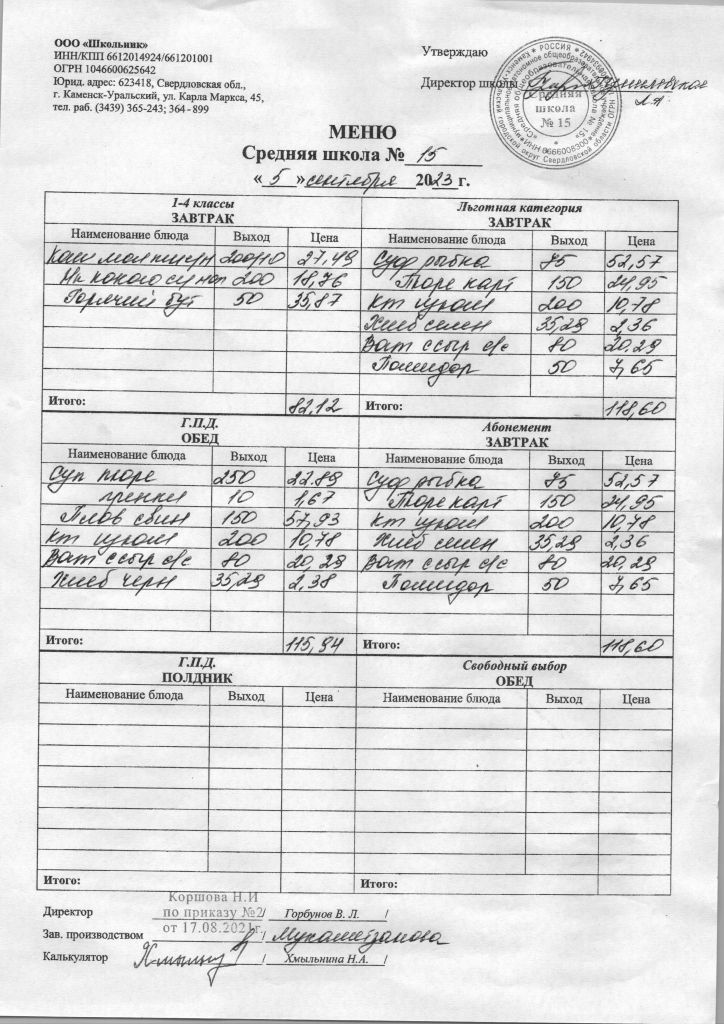 ООО «Школьник»
ИНН/КПП 6612014924/661201001
ОГРН 1046600625642
Юрид. адрес: 623418, Свердловская обл.,
г. Каменск-Уральский, ул. Карла Маркса, 45,
тел. раб. (3439) 365-243; 364-899
Утверждаю
Директор школы
средняя
школа
№ 15
МЕНЮ
Средняя школа № 15
« 5 » сентября 2023 г.
1-4 классы
ЗАВТРАК
Наименование блюда Выход Цена
200/10 27,49
200 18,76
Горячий бут 50 35,87
Итого: 82,12
Льготная категория
ЗАВТРАК
Наименование блюда Выход Цена
рыбка 75 52,57
Пюре карт 150 24,95
200 10,78
Хлеб 35,29 2,36
Ват с сыр 80 20,29
Помидор 50 7,65
Итого: 118,60
Г.П.Д.
ОБЕД
Наименование блюда Выход Цена
Суп пюре 250 22,89
гренки 10 1,67
Плов свин 150 57,93
200 10,78
Ват с сыр 80 20,29
Хлеб черн 35,29 2,38
Итого: 115,94
Абонемент
ЗАВТРАК
Наименование блюда Выход Цена
рыбка 75 52,57
Пюре карт 150 24,95
200 10,78
Хлеб 35,29 2,36
Ват с сыр 80 20,29
Помидор 50 7,65
Итого: 118,60
Г.П.Д.
ПОЛДНИК
Наименование блюда Выход Цена
Итого:
Свободный выбор
ОБЕД
Наименование блюда Выход Цена
Итого:
Коршова Н.И
Директор по приказу №2/ Горбунов В. Л. /
от 17.08.2021г.
Зав. производством /
Калькулятор / Хмыльнина Н.А. /